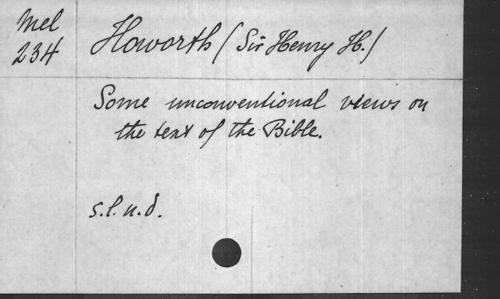 Mel
234
Howorth (Sir Henry H.)
Some unconventional views on
the text of the Bible.
s.l.n.d.